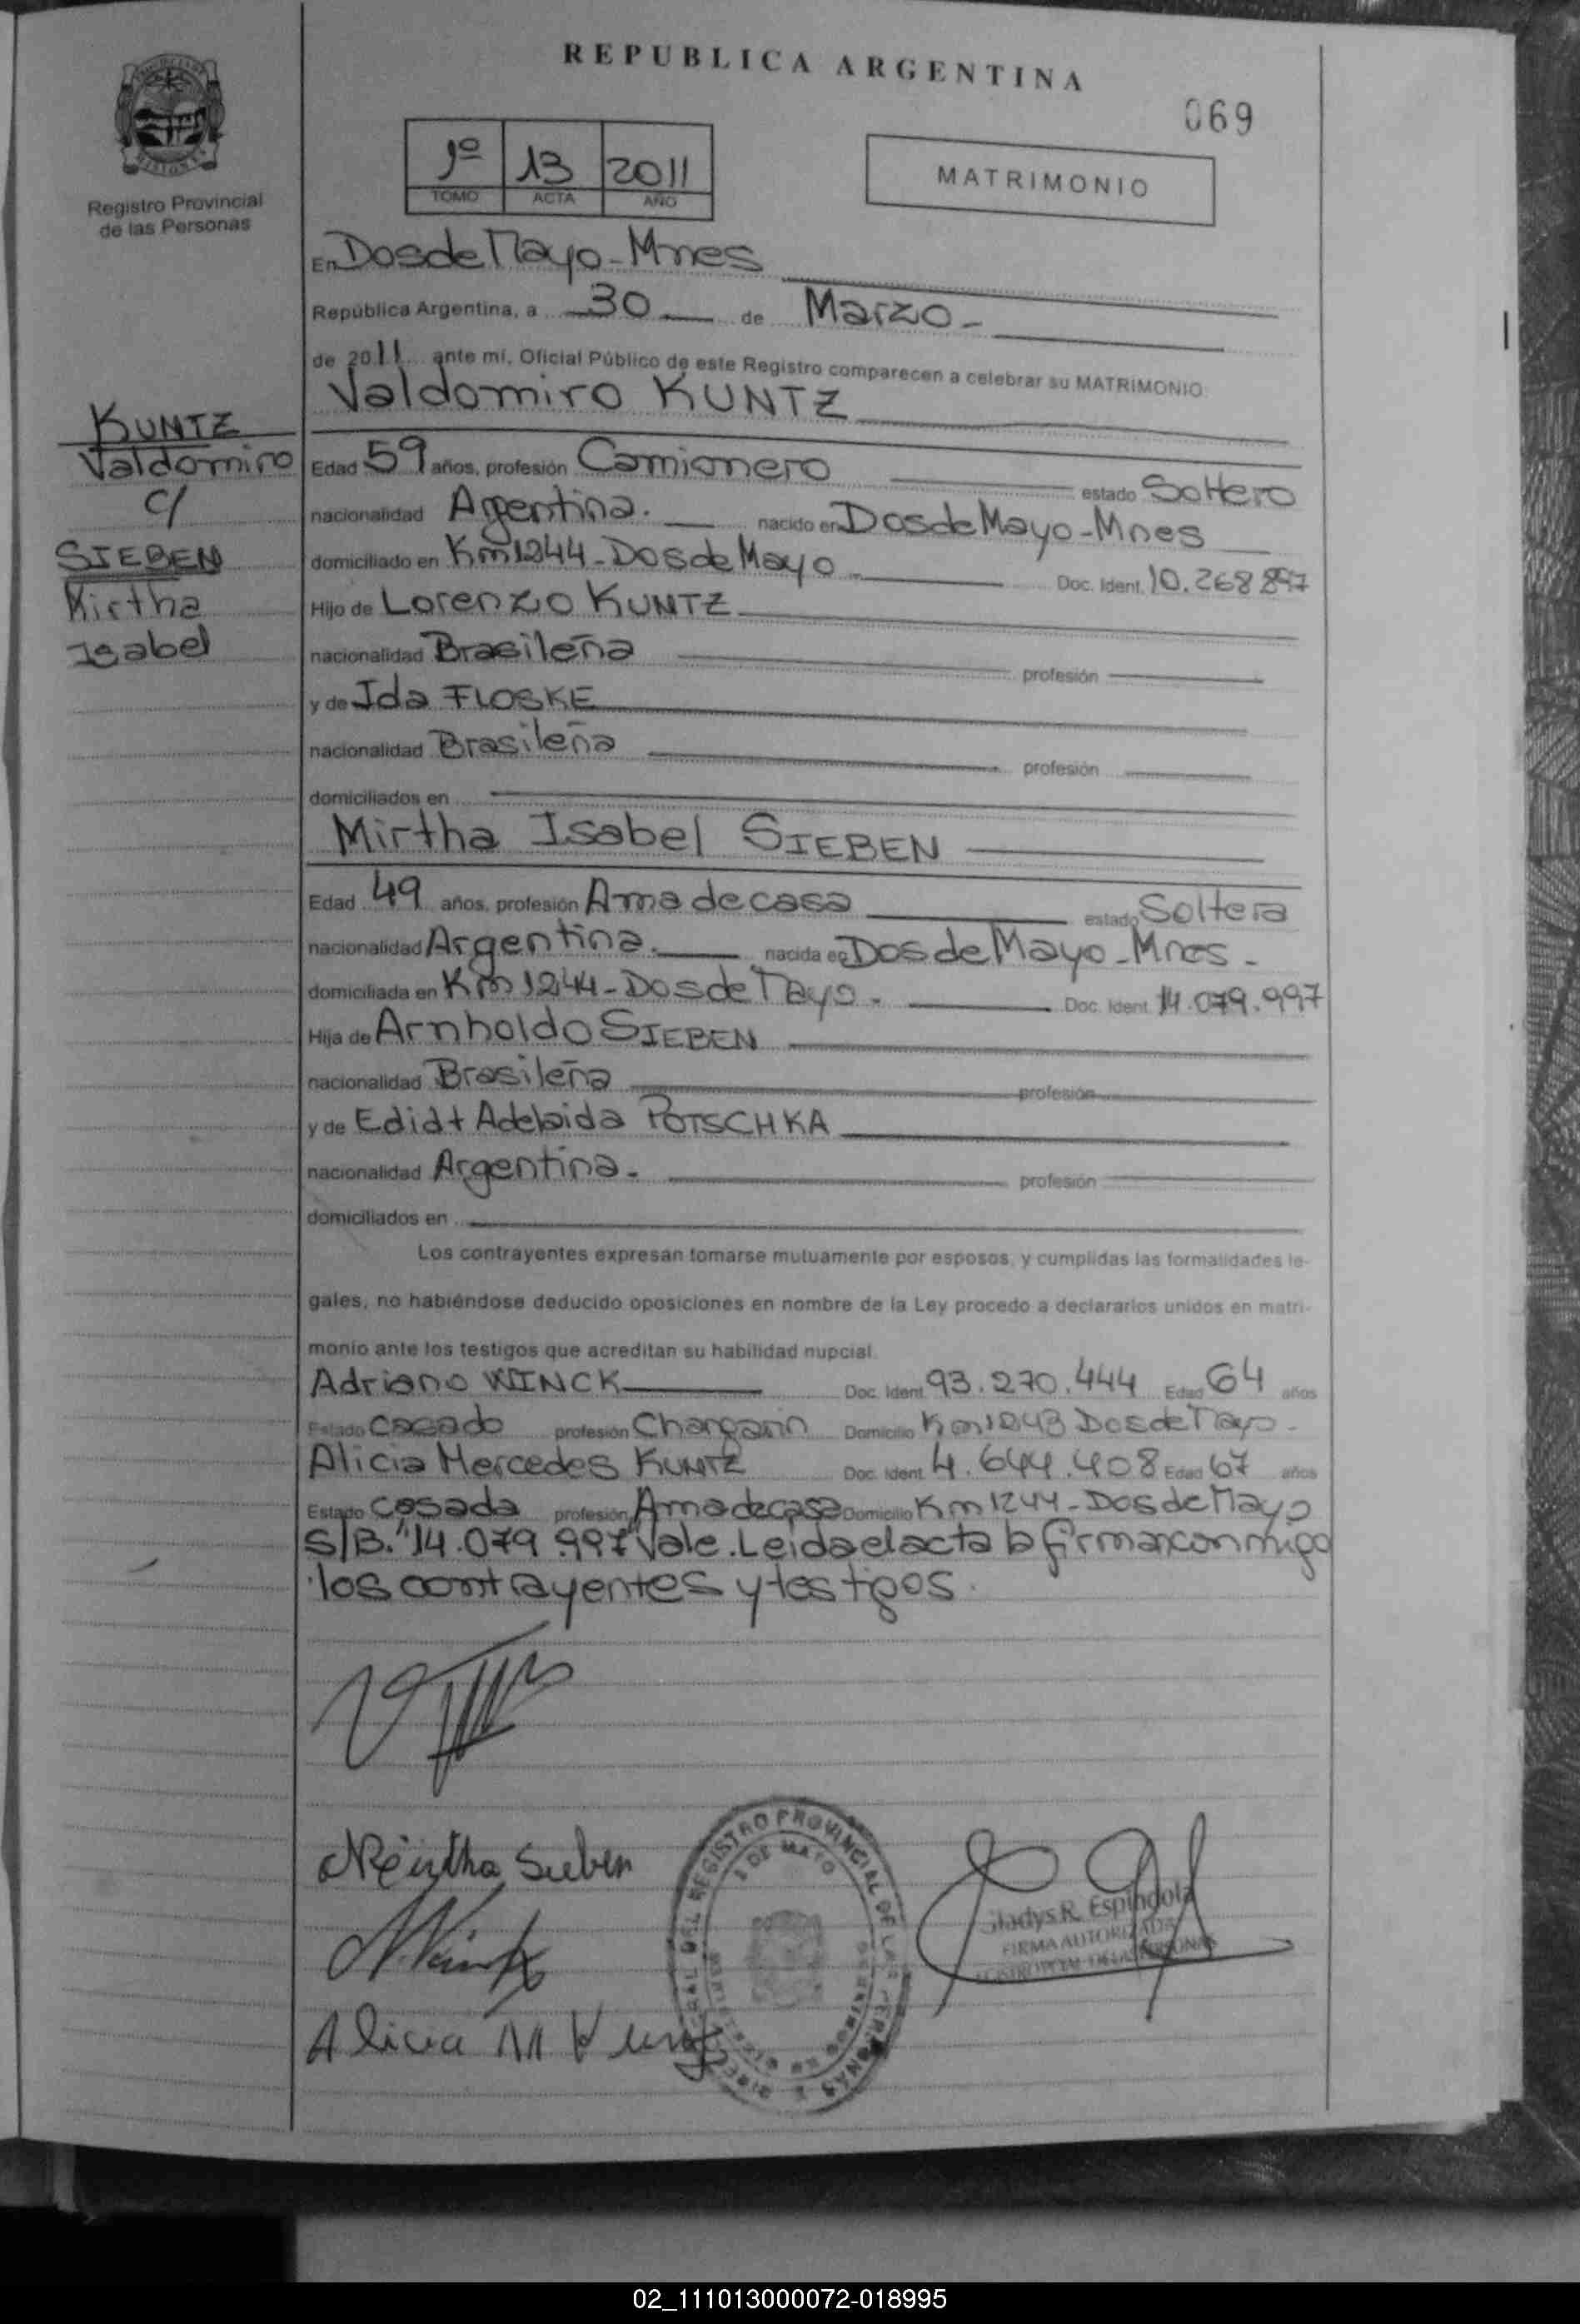 REPUBLICA ARGENTINA
069
Registro Provincial
de las Personas
1º 13 2011
TOMO ACTA AÑO
MATRIMONIO
En Dos de Mayo - Mnes
República Argentina, a 30 de Marzo -
de 2011 ante mí, Oficial Público de este Registro comparecen a celebrar su MATRIMONIO
Valdomiro KUNTZ
KUNTZ
Valdomiro
c/
SIEBEN
Mirtha
Isabel
Edad 59 años, profesión Camionero estado Soltero
nacionalidad Argentina. nacido en Dos de Mayo - Mnes
domiciliado en Km 1244 - Dos de Mayo - Doc. Ident. 10.268.897
Hijo de Lorenzo KUNTZ
nacionalidad Brasileña profesión
y de Ida FLOSKE
nacionalidad Brasileña profesión
domiciliados en
Mirtha Isabel SIEBEN
Edad 49 años, profesión Ama de casa estado Soltera
nacionalidad Argentina. nacida en Dos de Mayo - Mnes -
domiciliada en Km 1244 - Dos de Mayo - Doc. Ident. 14.079.997
Hija de Arnholdo SIEBEN
nacionalidad Brasileña profesión
y de Edidt Adelaida POTSCHKA
nacionalidad Argentina - profesión
domiciliados en
Los contrayentes expresan tomarse mutuamente por esposos, y cumplidas las formalidades le-
gales, no habiéndose deducido oposiciones en nombre de la Ley procedo a declararlos unidos en matri-
monio ante los testigos que acreditan su habilidad nupcial.
Adriano WINCK Doc. Ident. 93.270.444 Edad 64 años
Estado casado profesión Domicilio Km 1243 Dos de Mayo -
Alicia Mercedes KUNTZ Doc. Ident. 4.644.408 Edad 67 años
Estado casada profesión Ama de casa Domicilio Km 1244 - Dos de Mayo
S/B. "14.079.997" Vale. Leida el acta la firman conmigo
los contrayentes y testigos.
Mirtha Sieben
Alicia M Kuntz
REGISTRO PROVINCIAL DE LAS PERSONAS
2 DE MAYO
Gladys R. Espindola
FIRMA AUTORIZADA
02_111013000072-018995